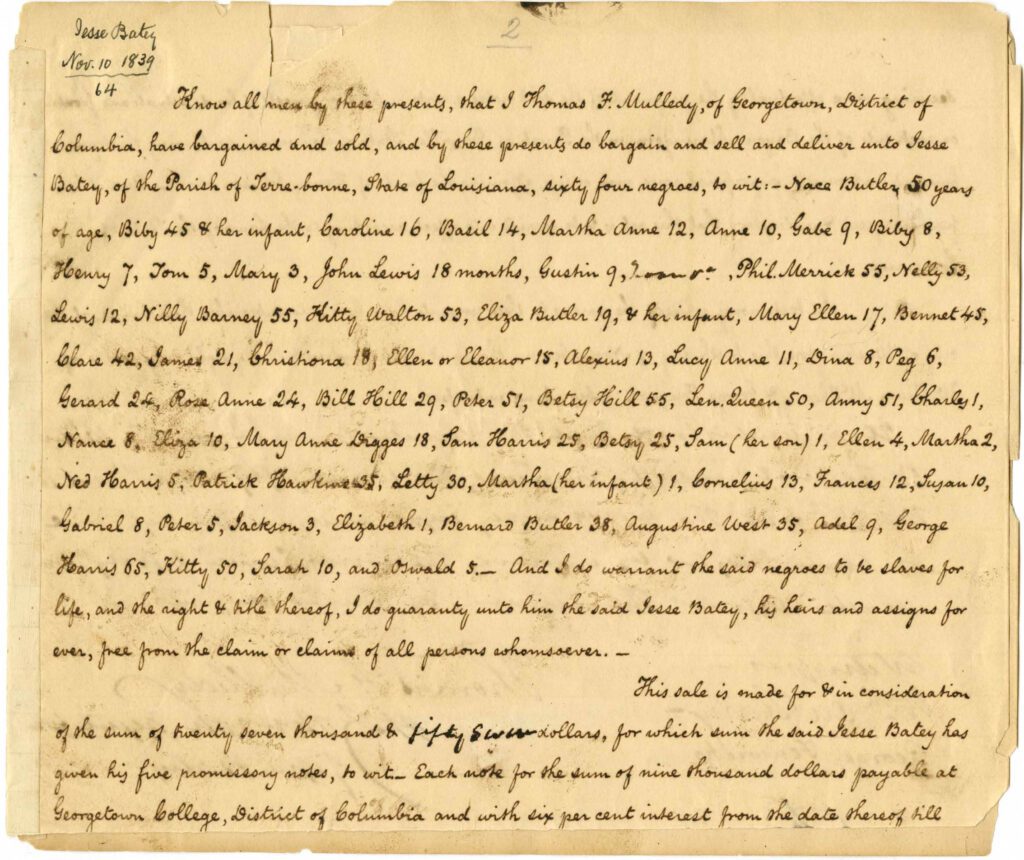 Jesse Batey
Nov. 10 1839
64
2
Know all men by these presents, that I Thomas F. Mulledy, of Georgetown, District of
Columbia, have bargained and sold, and by these presents do bargain and sell and deliver unto Jesse
Batey, of the Parish of Terre-bonne, State of Louisiana, sixty four negroes, to wit:- Nace Butler, 50 years
of age, Biby 45 & her infant, Caroline 16, Basil 14, Martha Anne 12, Anne 10, Gabe 9, Biby 8,
Henry 7, Tom 5, Mary 3, John Lewis 18 months, Gustin 9, , Phil. Merrick 55, Nelly 53,
Lewis 12, Nilly Barney 55, Kitty Walton 53, Eliza Butler 19, & her infant, Mary Ellen 17, Bennet 45,
Clare 42, James 21, Christiona 18, Ellen or Eleanor 15, Alexius 13, Lucy Anne 11, Dina 8, Peg 6,
Gerard 24, Rose Anne 24, Bill Hill 29, Peter 51, Betsy Hill 55, Len. Queen 50, Anny 51, Charley 1,
Nance 8, Eliza 10, Mary Anne Digges 18, Sam Harris 25, Betsy 25, Sam (her son) 1, Ellen 4, Martha 2,
Ned Harris 5, Patrick Hawkins 35, Letty 30, Martha (her infant) 1, Cornelius 13, Frances 12, Susan 10,
Gabriel 8, Peter 5, Jackson 3, Elizabeth 1, Bernard Butler 38, Augustine West 35, Adel 9, George
Harris 65, Kitty 50, Sarah 10, and Oswald 5.— And I do warrant the said negroes to be slaves for
life, and the right & title thereof, I do guaranty unto him the said Jesse Batey, his heirs and assigns for
ever, free from the claim or claims of all persons whomsoever. —
This sale is made for & in consideration
of the sum of twenty seven thousand & fifty dollars, for which sum the said Jesse Batey has
given his five promissory notes, to wit— Each note for the sum of nine thousand dollars payable at
Georgetown College, District of Columbia and with six per cent interest from the date thereof till